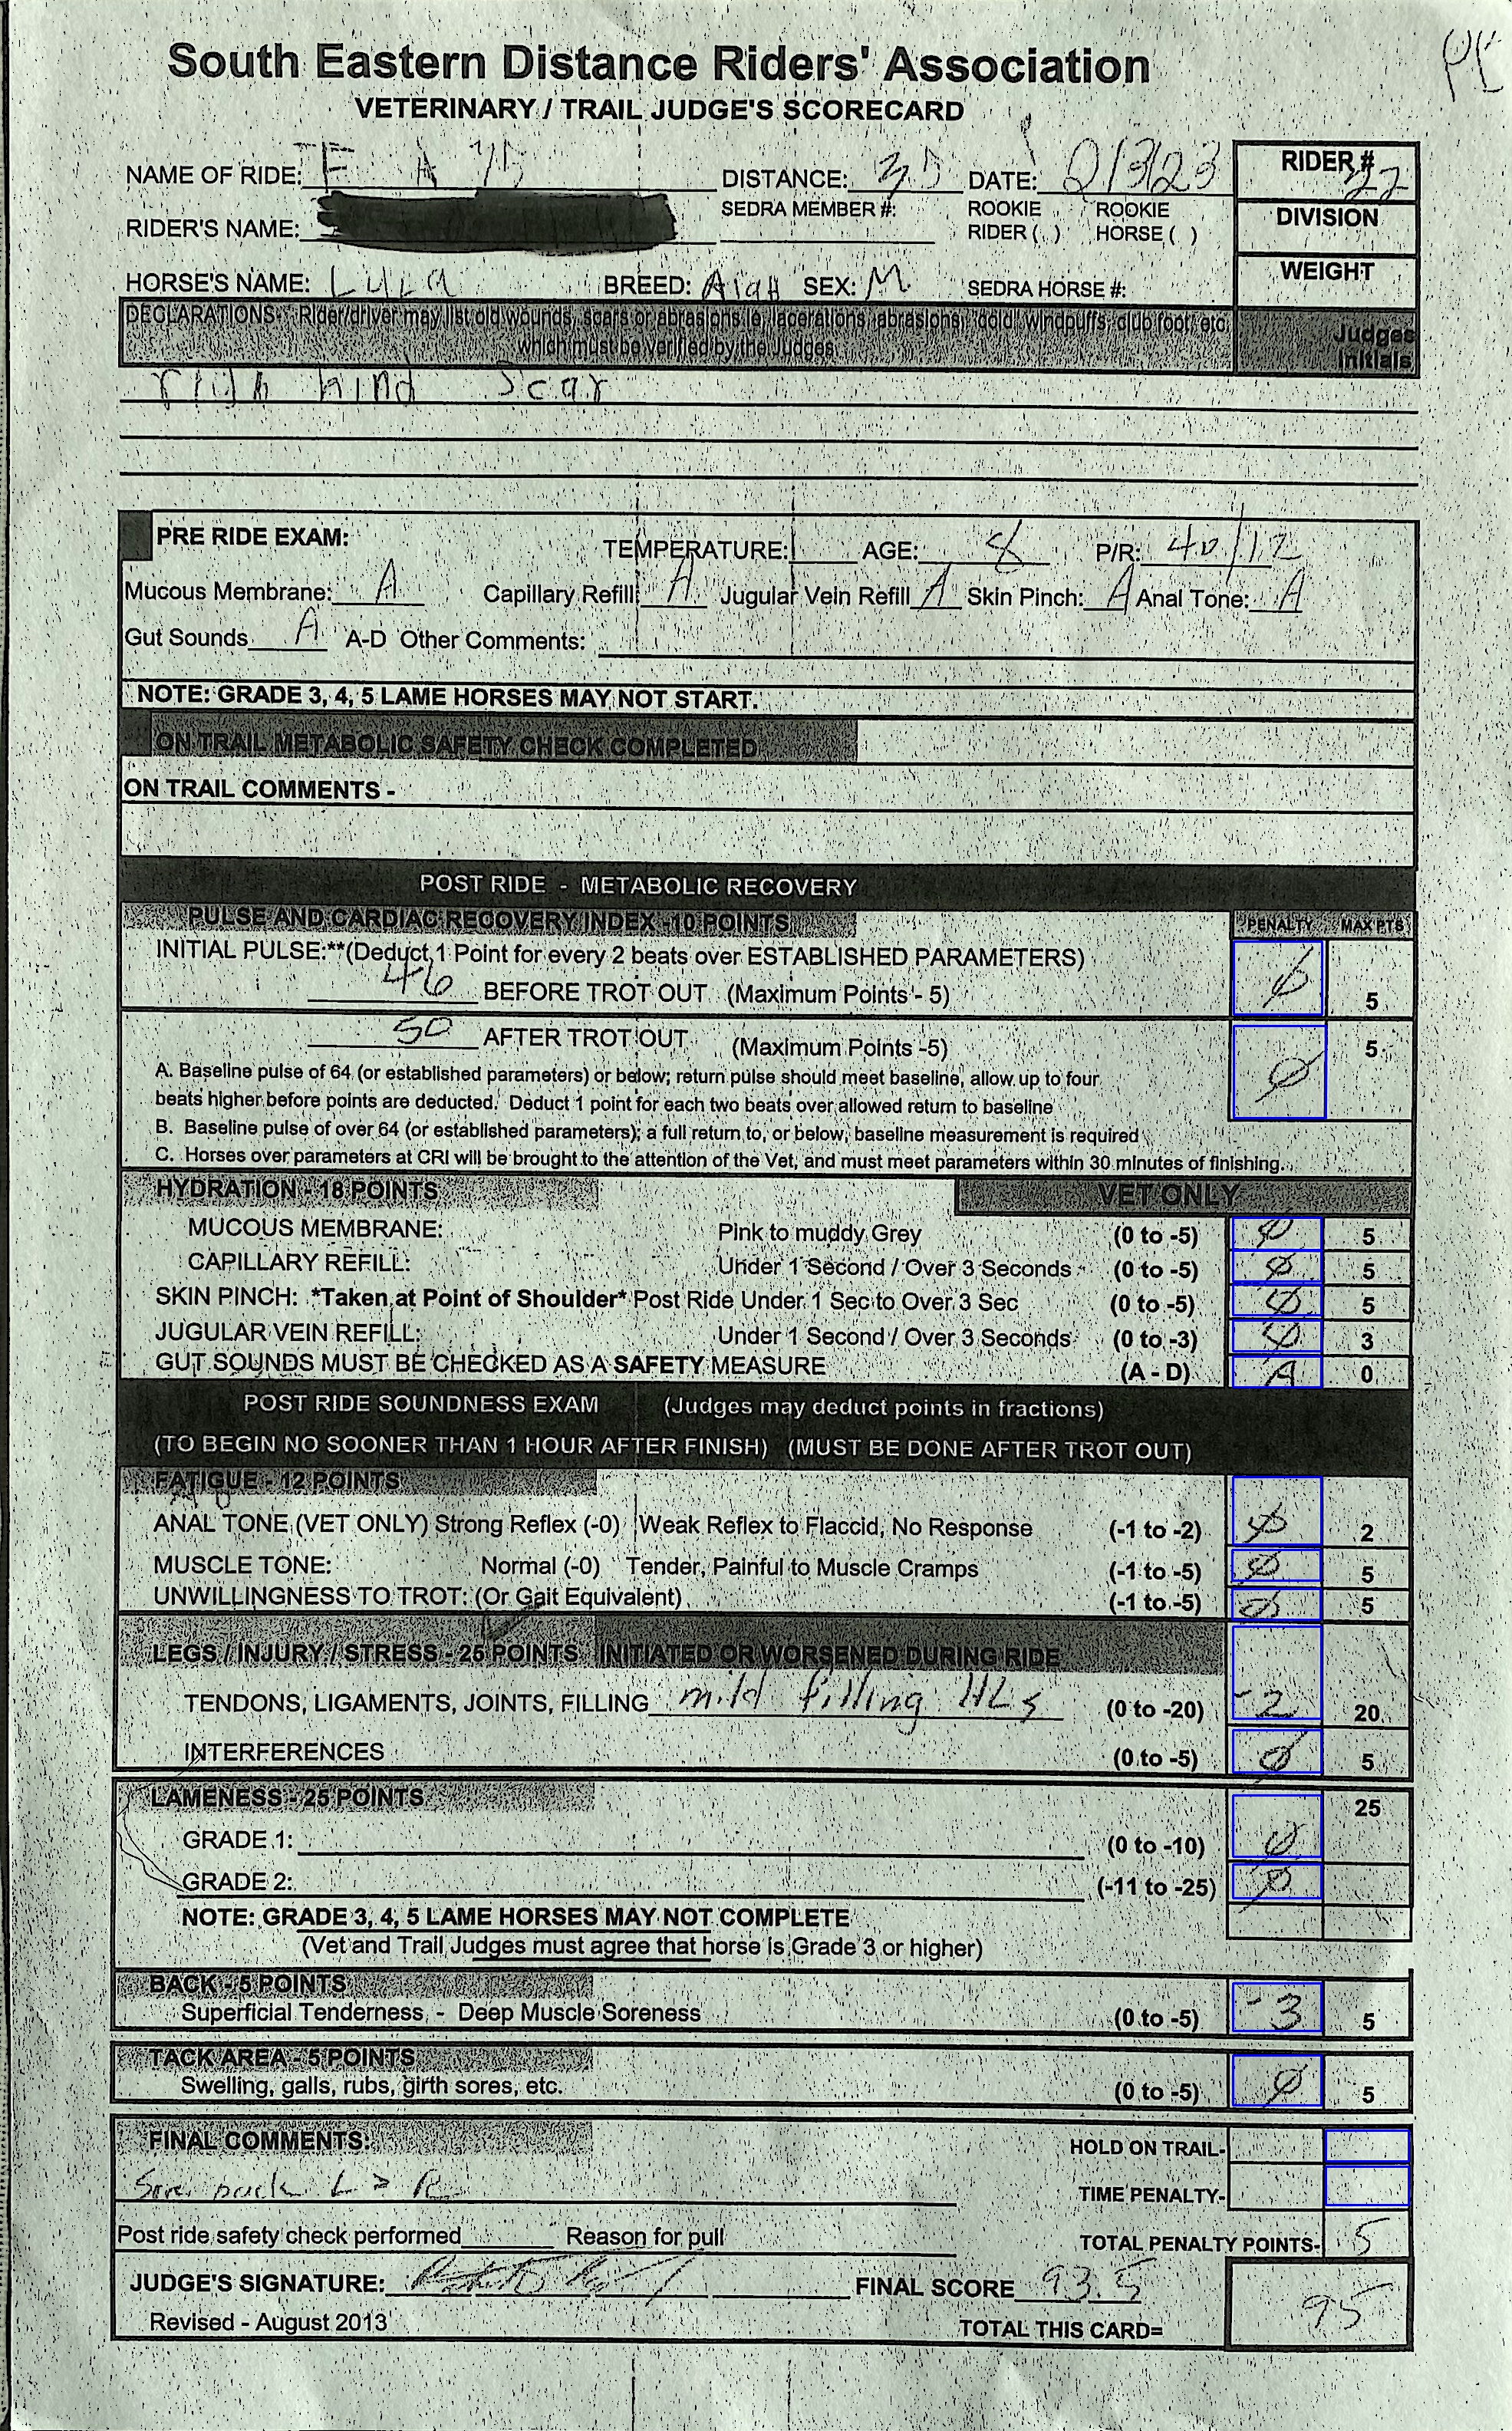 South Eastern Distance Riders' Association
VETERINARY / TRAIL JUDGE'S SCORECARD
NAME OF RIDE: DISTANCE: 30 DATE: 2/3/23 RIDER # 27
RIDER'S NAME: SEDRA MEMBER #: ROOKIE RIDER ( ) ROOKIE HORSE ( ) DIVISION
HORSE'S NAME: Lula BREED: SEX: M SEDRA HORSE #: WEIGHT
DECLARATIONS: Rider/driver may list old wounds, scars or abrasions ie, lacerations, abrasions, "cold" windpuffs, club foot, etc. Judges
which must be verified by the Judges initials
hind Scar
PRE RIDE EXAM: TEMPERATURE: AGE: 8 P/R: 40/12
Mucous Membrane: A Capillary Refill: A Jugular Vein Refill A Skin Pinch: A Anal Tone: A
Gut Sounds A A-D Other Comments:
NOTE: GRADE 3, 4, 5 LAME HORSES MAY NOT START.
ON TRAIL METABOLIC SAFETY CHECK COMPLETED
ON TRAIL COMMENTS -
POST RIDE - METABOLIC RECOVERY
PULSE AND CARDIAC RECOVERY INDEX -10 POINTS PENALTY MAX PTS
INITIAL PULSE:**(Deduct 1 Point for every 2 beats over ESTABLISHED PARAMETERS)
46 BEFORE TROT OUT (Maximum Points - 5) Ø 5
50 AFTER TROT OUT (Maximum Points -5) Ø 5
A. Baseline pulse of 64 (or established parameters) or below; return pulse should meet baseline, allow up to four
beats higher before points are deducted. Deduct 1 point for each two beats over allowed return to baseline
B. Baseline pulse of over 64 (or established parameters); a full return to, or below, baseline measurement is required
C. Horses over parameters at CRI will be brought to the attention of the Vet, and must meet parameters within 30 minutes of finishing.
HYDRATION - 18 POINTS VET ONLY
MUCOUS MEMBRANE: Pink to muddy Grey (0 to -5) Ø 5
CAPILLARY REFILL: Under 1 Second / Over 3 Seconds (0 to -5) Ø 5
SKIN PINCH: *Taken at Point of Shoulder* Post Ride Under 1 Sec to Over 3 Sec (0 to -5) Ø 5
JUGULAR VEIN REFILL: Under 1 Second / Over 3 Seconds (0 to -3) Ø 3
GUT SOUNDS MUST BE CHECKED AS A SAFETY MEASURE (A - D) A 0
POST RIDE SOUNDNESS EXAM (Judges may deduct points in fractions)
(TO BEGIN NO SOONER THAN 1 HOUR AFTER FINISH) (MUST BE DONE AFTER TROT OUT)
FATIGUE - 12 POINTS
ANAL TONE (VET ONLY) Strong Reflex (-0) Weak Reflex to Flaccid, No Response (-1 to -2) Ø 2
MUSCLE TONE: Normal (-0) Tender, Painful to Muscle Cramps (-1 to -5) Ø 5
UNWILLINGNESS TO TROT: (Or Gait Equivalent) (-1 to -5) Ø 5
LEGS / INJURY / STRESS - 25 POINTS INITIATED OR WORSENED DURING RIDE
TENDONS, LIGAMENTS, JOINTS, FILLING mild filling HLs (0 to -20) -2 20
INTERFERENCES (0 to -5) Ø 5
LAMENESS - 25 POINTS 25
GRADE 1: (0 to -10) Ø
GRADE 2: (-11 to -25) Ø
NOTE: GRADE 3, 4, 5 LAME HORSES MAY NOT COMPLETE
(Vet and Trail Judges must agree that horse is Grade 3 or higher)
BACK - 5 POINTS
Superficial Tenderness - Deep Muscle Soreness (0 to -5) -3 5
TACK AREA - 5 POINTS
Swelling, galls, rubs, girth sores, etc. (0 to -5) Ø 5
FINAL COMMENTS: HOLD ON TRAIL-
L > R TIME PENALTY-
Post ride safety check performed Reason for pull TOTAL PENALTY POINTS- 5
JUDGE'S SIGNATURE: FINAL SCORE 93.5
Revised - August 2013 TOTAL THIS CARD= 95